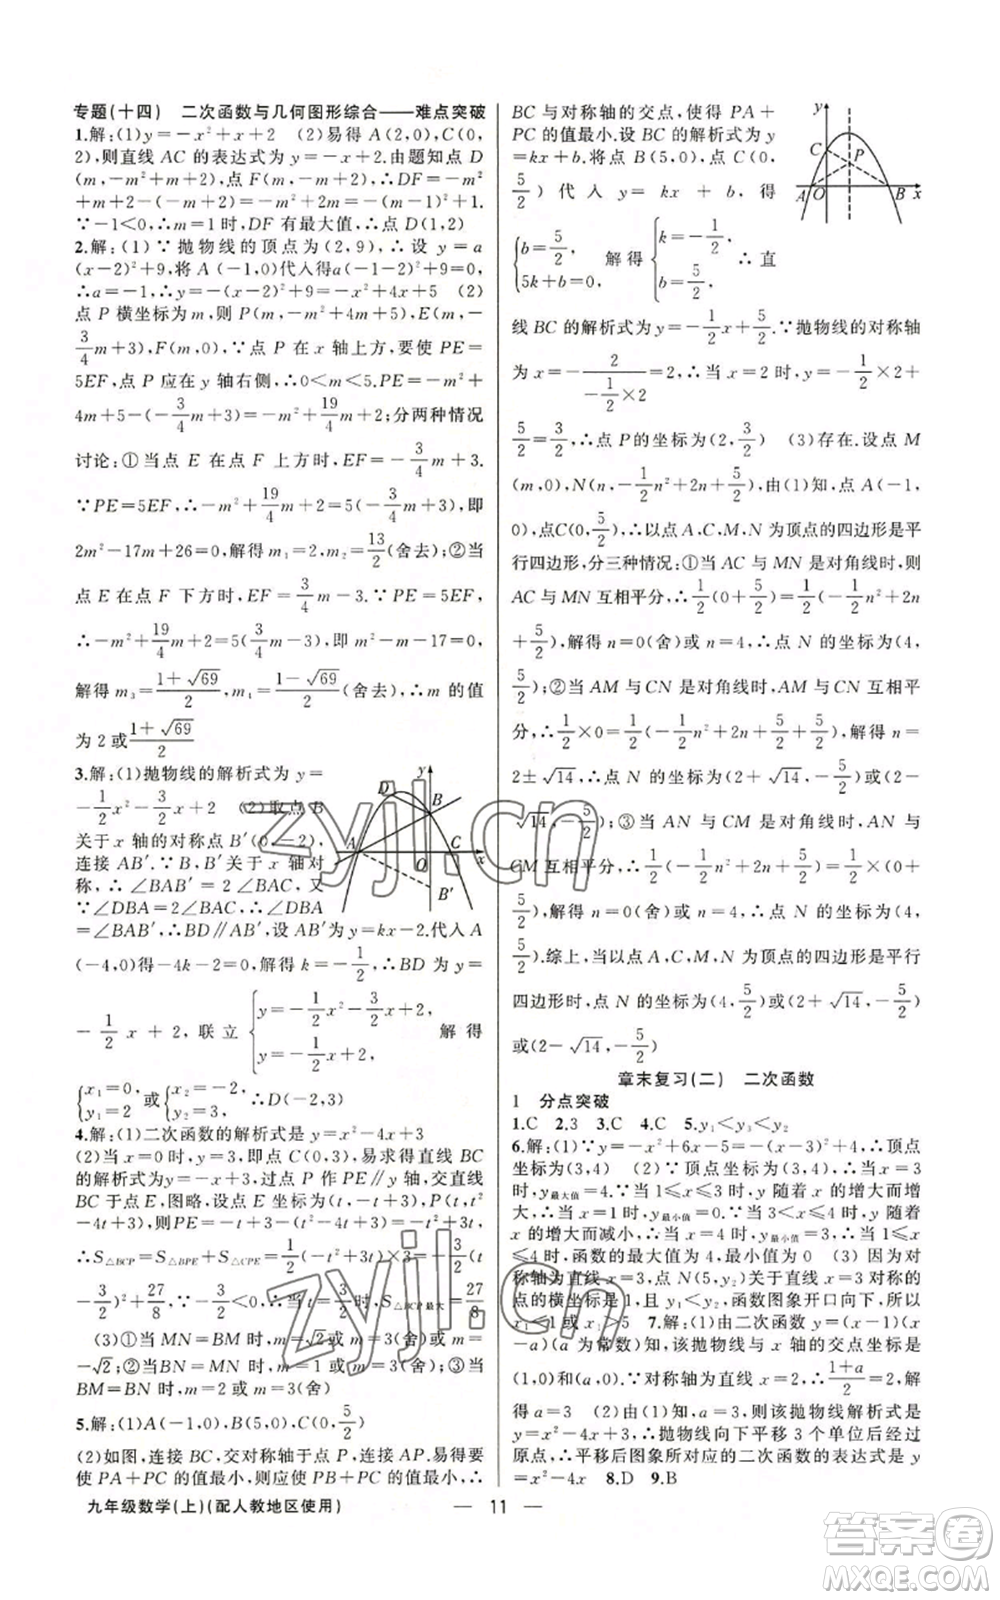 专题(十四)　二次函数与几何图形综合——难点突破
1.解:(1)y=-x²+x+2　(2)易得 A(2,0),C(0,
2),则直线 AC 的表达式为 y=-x+2.由题知点 D
(m,-m²+m+2),点 F(m,-m+2),∴DF=-m²
+m+2-(-m+2)=-m²+2m=-(m-1)²+1.
∵-1<0,∴m=1 时,DF 有最大值,∴点 D(1,2)
2.解:(1)∵抛物线的顶点为(2,9),∴设 y=a
(x-2)²+9,将 A(-1,0)代入得:a(-1-2)²+9=0,
∴a=-1,∴y=-(x-2)²+9=-x²+4x+5　(2)
点 P 横坐标为 m,则 P(m,-m²+4m+5),E(m,-
3/4m+3),F(m,0),∵点 P 在 x 轴上方,要使 PE=
5EF,点 P 应在 y 轴右侧,∴0<m<5.PE=-m²+
4m+5-(-3/4m+3)=-m²+19/4m+2;分两种情况
讨论:①当点 E 在点 F 上方时,EF=-3/4m+3.
∵PE=5EF,∴-m²+19/4m+2=5(-3/4m+3),即
2m²-17m+26=0,解得 m₁=2,m₂=13/2(舍去);②当
点 E 在点 F 下方时,EF=3/4m-3.∵PE=5EF,
∴-m²+19/4m+2=5(3/4m-3),即 m²-m-17=0,
解得 m₃=(1+√69)/2,m₄=(1-√69)/2(舍去),∴m 的值
为 2 或(1+√69)/2
3.解:(1)抛物线的解析式为 y=
-1/2x²-3/2x+2　(2)取点 B
关于 x 轴的对称点 B′(0,-2),
连接 AB′.∵B、B′关于 x 轴对
称,∴∠BAB′=2∠BAC,又
∵∠DBA=2∠BAC,∴∠DBA
=∠BAB′,∴DB∥AB′,设 AB′为 y=kx-2.代入 A
(-4,0)得-4k-2=0,解得 k=-1/2,∴BD 为 y=
-1/2x+2,联立{y=-1/2x²-3/2x+2, y=-1/2x+2, 解得
{x₁=0, y₁=2 或{x₂=-2, y₂=3, ∴D(-2,3)
D B A O C x y B′
4.解:(1)二次函数的解析式是 y=x²-4x+3
(2)当 x=0 时,y=3,即点 C(0,3),易求得直线 BC
的解析式为 y=-x+3,过点 P 作 PE∥y 轴,交直线
BC 于点 E,图略,设点 E 坐标为(t,-t+3),P(t,t²
-4t+3),则PE=-t+3-(t²-4t+3)=-t²+3t,
∴S△BCP=S△BPE+S△CPE=1/2(-t²+3t)×3=-3/2(t-
3/2)²+27/8,∵-3/2<0,∴当 t=3/2时,S△BCP最大=27/8
(3)①当 MN=BM 时,m=√2或 m=0(舍)或 m=
-√2;②当BN=MN 时,m=1 或 m=3(舍);③当
BM=BN 时,m=2 或 m=3(舍)
5.解:(1)A(-1,0),B(5,0),C(0,5/2)
(2)如图,连接 BC,交对称轴于点 P,连接 AP.易得要
使 PA+PC 的值最小,则应使 PB+PC 的值最小,
BC 与对称轴的交点,使得 PA+
PC 的值最小.设 BC 的解析式为 y
=kx+b.将点 B(5,0)、点 C(0,
5/2)代入 y=kx+b,得
{b=5/2, 5k+b=0, 解得{k=-1/2, b=5/2, ∴直
y C P A O B x
线 BC 的解析式为 y=-1/2x+5/2.∵抛物线的对称轴
为 x=-2/(-1/2×2)=2,∴当 x=2 时,y=-1/2×2+
5/2=3/2,∴点 P的坐标为(2,3/2)　(3)存在.设点 M
(m,0),N(n,-1/2n²+2n+5/2),由(1)知,点 A(-1,
0),点C(0,5/2),∴以点 A、C、M、N 为顶点的四边形是平
行四边形,分三种情况:①当 AC 与 MN 是对角线时,则
AC 与 MN 互相平分,∴1/2(0+5/2)=1/2(-1/2n²+2n
+5/2),解得 n=0(舍)或 n=4,∴点 N 的坐标为(4,
5/2);②当 AM 与CN 是对角线时,AM 与 CN 互相平
分,∴1/2×0=1/2(-1/2n²+2n+5/2+5/2),解得 n=
2±√14,∴点 N 的坐标为(2+√14,-5/2)或(2-
√14,-5/2);③当 AN 与 CM 是对角线时,AN 与
CM 互相平分,∴1/2(-1/2n²+2n+5/2)=1/2×(0+
5/2),解得 n=0(舍)或 n=4,∴点 N 的坐标为(4,
5/2).综上,当以点 A、C、M、N 为顶点的四边形是平行
四边形时,点 N 的坐标为(4,5/2)或(2+√14,-5/2)
或(2-√14,-5/2)
章末复习(二)　二次函数
1　分点突破
1.C　2.3　3.C　4.C　5.y₁<y₃<y₂
6.解:(1)∵y=-x²+6x-5=-(x-3)²+4,∴顶点
坐标为(3,4)　(2)∵顶点坐标为(3,4),∴当 x=3
时,y最大值=4.∵当 1≤x≤3 时,y 随着 x 的增大而增
大,∴当 x=1 时,y最小值=0.∵当 3<x≤4 时,y 随着
x 的增大而减小,∴当 x=4 时,y最小值=3.∴当 1≤x
≤4 时,函数的最大值为 4,最小值为 0　(3)因为对
称轴为直线 x=3,点 N(5,y₂)关于直线 x=3 对称
点的横坐标是 1,且 y₁<y₂,函数图象开口向下,所以
x₁<1 或 x₁>5　7.解:(1)由二次函数 y=(x-1)(x
-a)(a 为常数)知,该抛物线与 x 轴的交点坐标为
(1,0)和(a,0).∵对称轴为直线 x=2,∴(1+a)/2=2,解
得 a=3　(2)由(1)知,a=3,则该抛物线解析式为
y=x²-4x+3,∴抛物线向下平移 3 个单位后经过
原点,∴平移后图象所对应的二次函数的表达式是 y
=x²-4x　8.D　9.B
九年级数学(上)(配人教地区使用)
— 11 —
zyjl.cn
zyjl.cn
答案圈
MXQE.COM